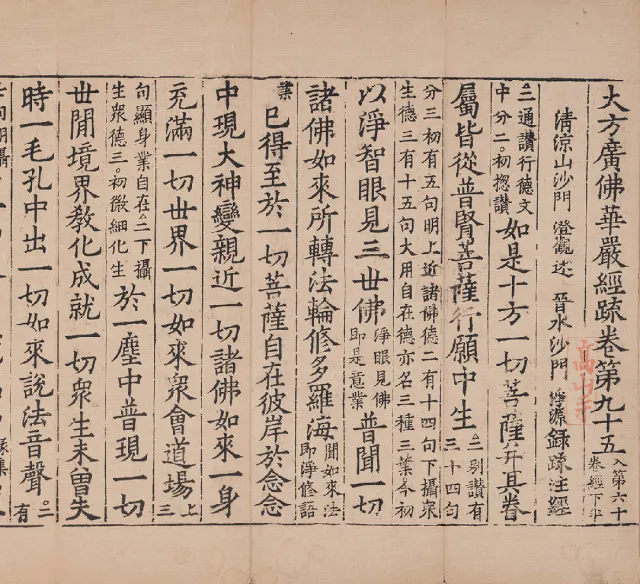 大方廣佛華嚴經疏卷第九十五 入第六十卷經下半
高山寺
清涼山沙門 澄觀述 晉水沙門 淨源錄疏注經
二通讚行德文中分二。初揔讚如是十方一切菩薩并其眷
屬皆從普賢菩薩行願中生二别讚有三十四句
分三初有五句明上近諸佛德二有十四句下攝衆生德三有十五句大用自在德亦名三種三業今初
以淨智眼見三世佛淨眼見佛即是意業普聞一切
諸佛如來所轉法輪修多羅海聞如來法即淨修語
業已得至於一切菩薩自在彼岸於念念
中現大神變親近一切諸佛如來一身
充滿一切世界一切如來衆會道場上三
句顯身業自在二下攝生衆德三。初微細化生於一塵中普現一切
世間境界教化成就一切衆生未曾失
時一毛孔中出一切如來說法音聲二有